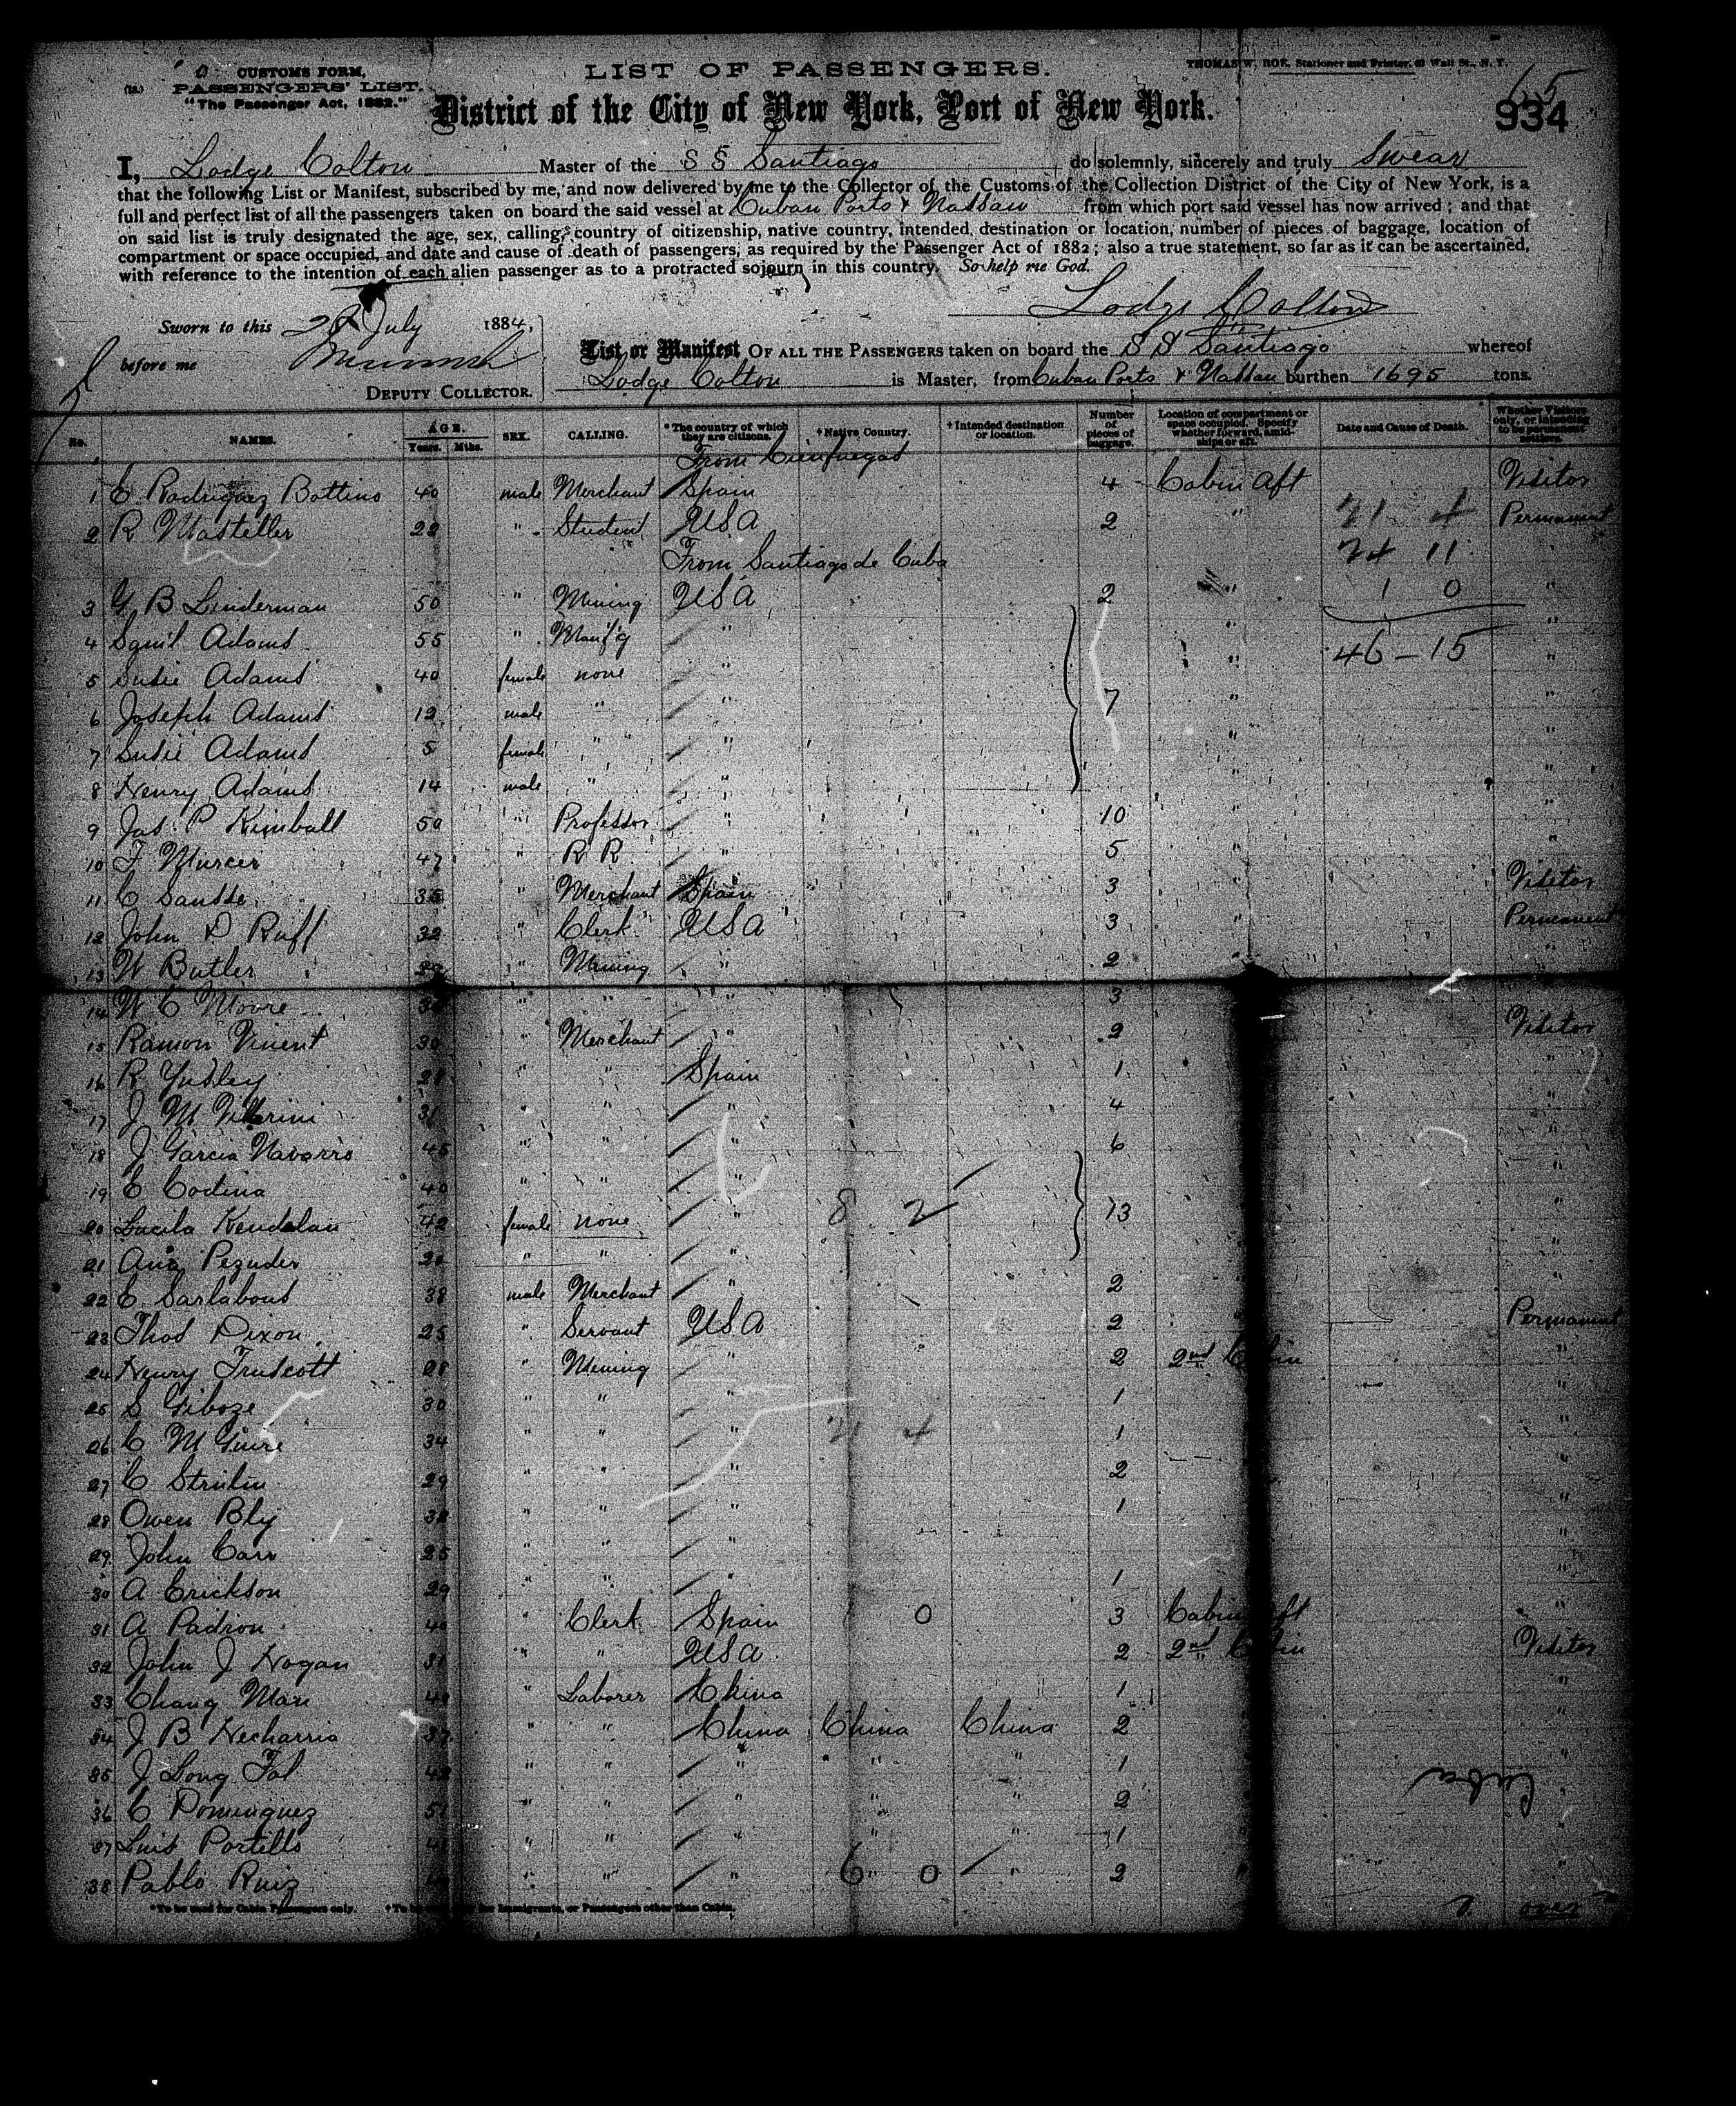 CUSTOMS FORM,
PASSENGERS' LIST.
"The Passenger Act, 1882."
LIST OF PASSENGERS.
THOMAS W. ROE, Stationer and Printer, 62 Wall St., N. Y.
65
934
District of the City of New York, Port of New York.
I, Lodge Colton Master of the S S Santiago do solemnly, sincerely and truly Swear
that the following List or Manifest, subscribed by me, and now delivered by me to the Collector of the Customs of the Collection District of the City of New York, is a
full and perfect list of all the passengers taken on board the said vessel at Cuban Ports & Nassau from which port said vessel has now arrived; and that
on said list is truly designated the age, sex, calling, country of citizenship, native country, intended destination or location, number of pieces of baggage, location of
compartment or space occupied, and date and cause of death of passengers, as required by the Passenger Act of 1882; also a true statement, so far as it can be ascertained,
with reference to the intention of each alien passenger as to a protracted sojourn in this country. So help me God.
Lodge Colton
Sworn to this July 1884,
before me
DEPUTY COLLECTOR.
List or Manifest OF ALL THE PASSENGERS taken on board the S S Santiago whereof
Lodge Colton is Master, from Cuban Ports & Nassau burthen 1695 tons.
No. NAMES. AGE. Years. Mths. SEX. CALLING. *The country of which they are citizens. †Native Country. †Intended destination or location. Number of pieces of baggage. Location of compartment or space occupied. Specify whether forward, amidships or aft. Date and Cause of Death. Whether Visitors only, or intending to be permanent settlers.
From Cienfuegos
1 C Rodriguez Battino 40 male Merchant Spain 4 Cabin Aft Visitor
2 R Masteller 22 " Student USA 2 " 21 4 Permanent
From Santiago de Cuba 24 11
3 G B Linderman 50 " Mining USA 2 " 1 0 "
4 Saml Adams 55 " Manf'g " " "
5 Susie Adams 40 female none " " 46 - 15 "
6 Joseph Adams 12 male " " 7 " "
7 Susie Adams 5 female " " " "
8 Henry Adams 14 male " " " "
9 Jas. P Kimball 50 " Professor " 10 " "
10 F Murcer 47 " R R " 5 " "
11 C Sausse 35 " Merchant Spain 3 " Visitor
12 John D Ruff 32 " Clerk USA 3 " Permanent
13 W Butler " Mining " 2 " "
14 W C Moore " " " 3
15 Ramon Vinent 30 " Merchant " 2 Visitor
16 R Yndley " " Spain 1 "
17 J M 31 " " " 4 "
18 J Garcia Navarro 45 " " " 6 "
19 C Codina 40 " " " "
20 Lucila Kendelan 42 female none " 8 2 13 "
21 Ana Pezuder 20 " " " "
22 C Sarlabous 38 male Merchant " 2 "
23 Thos Dixon 25 " Servant USA 2 Permanent
24 Henry Truscott 28 " Mining " 2 2nd Cabin "
25 S Giboze 30 " " " 1 "
26 C M Guire 34 " " " 21 4 1 "
27 C Strulin 29 " " " 2 "
28 Owen Bly " " " 1 "
29 John Carr 25 " " " "
30 A Erickson 29 " " " 1 "
31 A Padron 40 " Clerk Spain 0 3 Cabin Aft "
32 John J Hogan 31 " " USA 2 2nd Cabin Visitor
33 Chang Man " Laborer China 1 "
34 J B Hecharria 37 " " China China China 2 "
35 J Long Fal " " " " " 1 "
36 C Dominguez 51 " " " " " 2 "
37 Luis Portillo " " " " " 1 "
38 Pablo Ruiz " " " 6 0 " 2 "
Cuba
*To be used for Cabin Passengers only. †To be used for Immigrants, or Passengers other than Cabin.
over